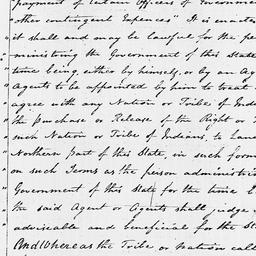 payment of certain Officers of Governme
"other contingent Expences" It is enacte
it shall and may be lawful for the per
ministring the Government of this State
time being either by himself, or by an Ag
Agents to be appointed by him to treat
agree with any Nation or Tribe of Inde
the purchase or Release of the Right or
such Nation or Tribe of Indians, to Land
Northern part of this State, in such form
on such Terms as the person administri
Government of this State for the time b
the said Agent or Agents shall judge
adviseable and beneficial for the St
And Whereas the Tribe or Nation call